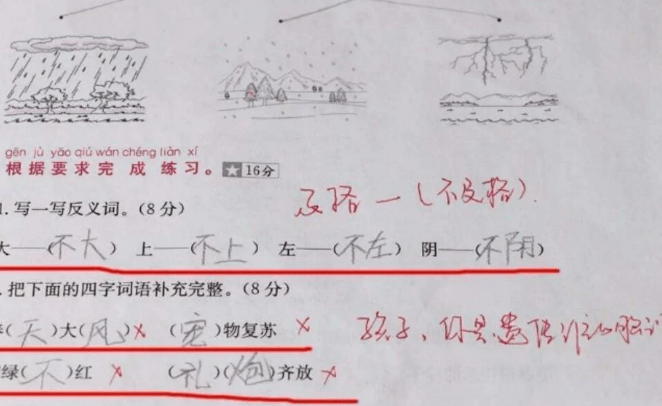 gēn jù yāo qiú wán chéng liàn xí
根据要求完成练习。★16分
1.写一写反义词。(8分)
及格一(不及格).
大——(不大) 上——(不上) 左——(不左) 阴——(不阴)
.把下面的四字词语补充完整。(8分)
(天)大(风)× (宠)物复苏 ×
孩子、你是遗传谁的
绿(不)红 × (礼)(炮)齐放 ×